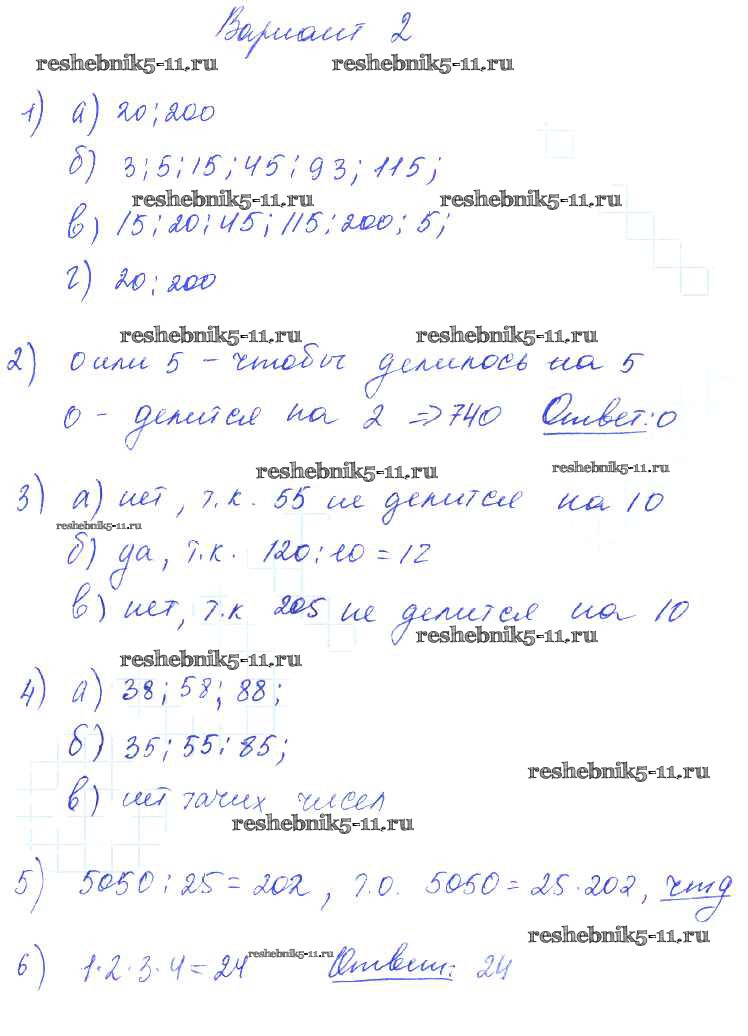 Вариант 2
reshebnik5-11.ru reshebnik5-11.ru
1) а) 20; 200
б) 3; 5; 15; 45; 93; 115;
reshebnik5-11.ru reshebnik5-11.ru
в) 15; 20; 45; 115; 200; 5;
г) 20; 200
reshebnik5-11.ru reshebnik5-11.ru
2) 0 или 5 - чтобы делилось на 5
0 - делится на 2 => 740 Ответ: 0
reshebnik5-11.ru reshebnik5-11.ru
3) а) нет, т.к. 55 не делится на 10
reshebnik5-11.ru
б) да, т.к. 120:10=12
в) нет, т.к 205 не делится на 10
reshebnik5-11.ru
reshebnik5-11.ru
4) а) 38; 58; 88;
б) 35; 55; 85;
reshebnik5-11.ru
в) нет таких чисел
reshebnik5-11.ru
5) 5050:25=202, т.о. 5050=25·202, чтд
reshebnik5-11.ru
6) 1·2·3·4=24 reshebnik5-11.ru Ответ: 24